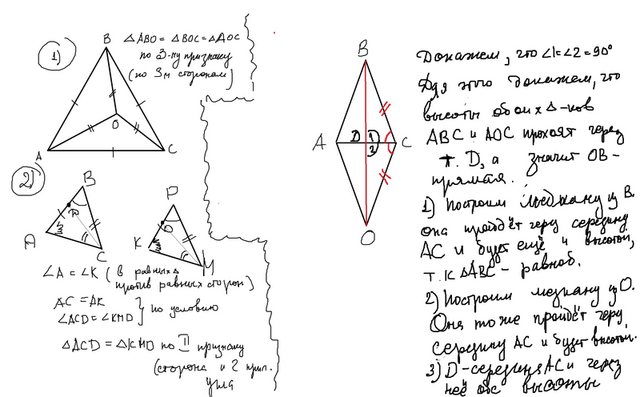 1)
B
O
A
C
△ABO = △BOC = △AOC
по 3-му признаку
(по 3м сторонам)
2)
B
D
A
C
P
O
K
M
∠A = ∠K (в равных △
против равных сторон)
AC = AK
∠ACD = ∠KMO
} по условию
△ACD = △KMO по II признаку
(сторона и 2 прил.
угла
B
A
D
1
2
C
O
Докажем, что ∠1=∠2=90°
Для этого докажем, что
высоты обоих △-ков
ABC и AOC проходят через
т. D, а значит OB -
прямая.
1) Построим медиану из B.
она пройдёт через середину
AC и будет ещё и высотой,
т.к △ABC - равноб.
2) Построим медиану из O.
Она тоже пройдёт через
середину AC и будет высотой.
3) D - середина AC и через
неё обе высоты